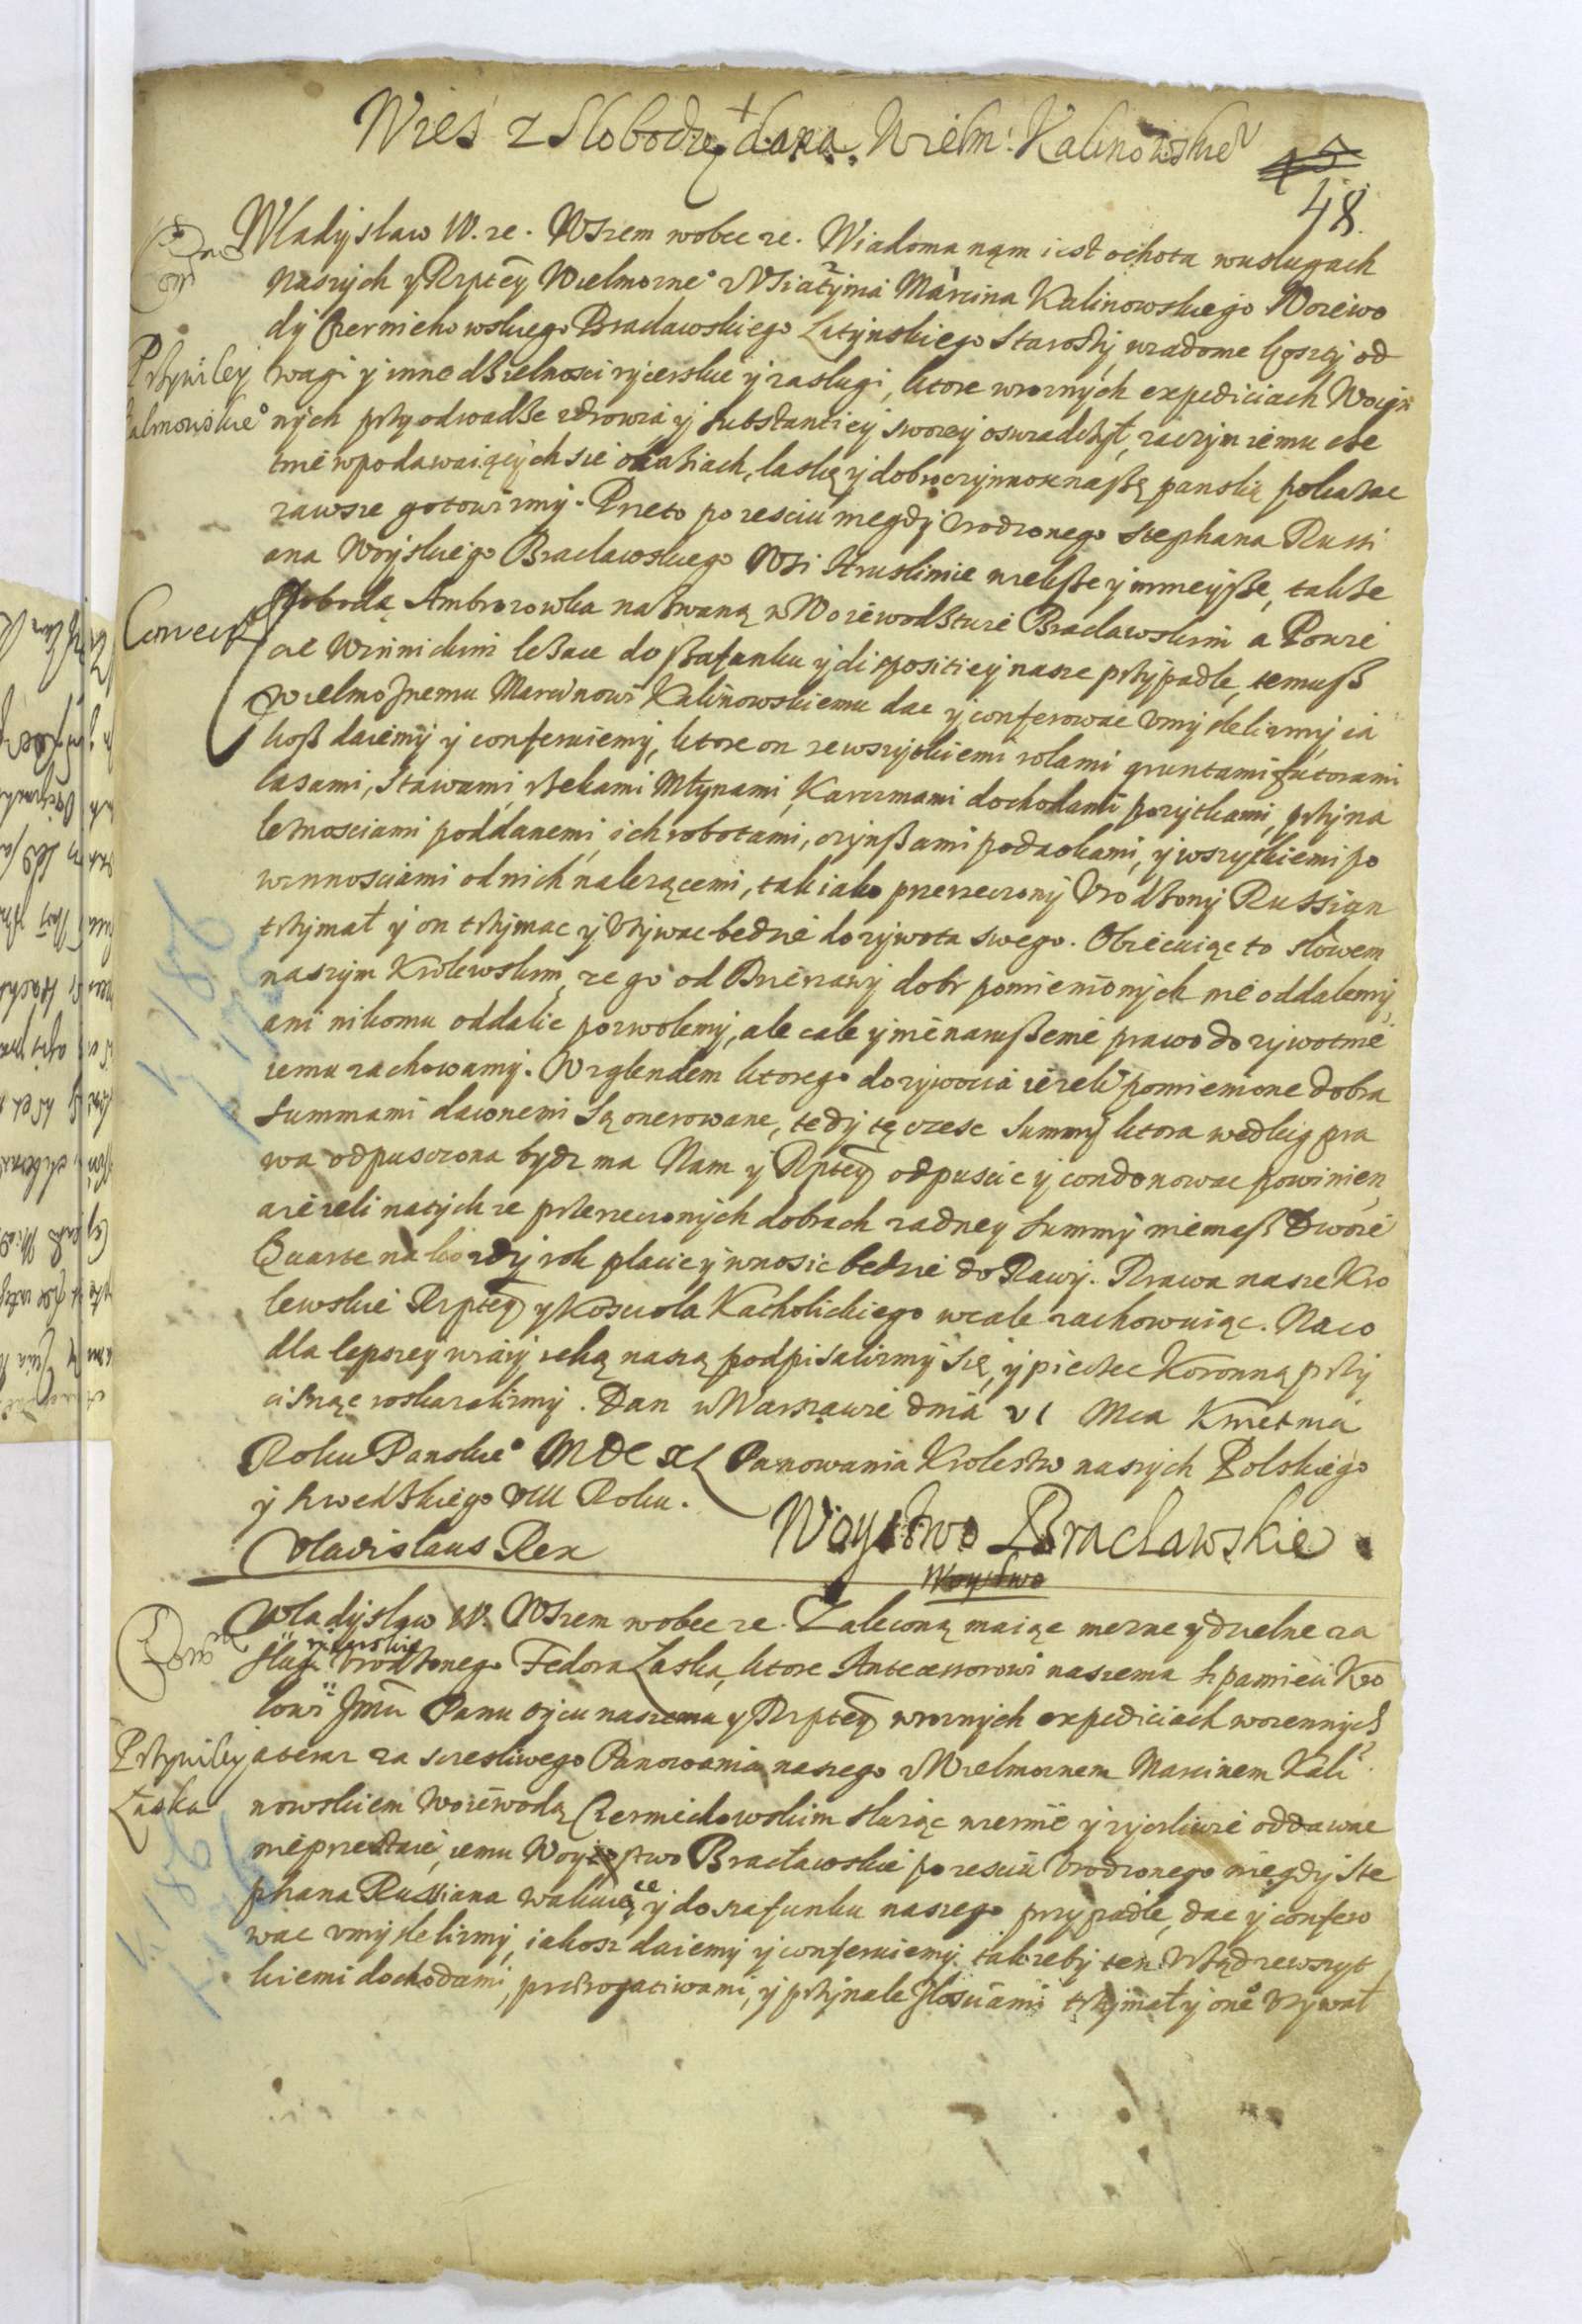 Wies z Slobodzą dana Wielm: Kalinowskie°
48.
Wladyslaw IV. ze. Wszem wobec ze. Wiadoma nąm iest ochota w usługach
naszych y Rzptey Wielmozne° Marcina Kalinowskiego Woiewo
dy Czerniehowskiego Bracławskiego Latyńskiego Starosty, wiadome koszty od
Przywiley
Kalinowskie°
wagi y inne dzielnosci rycerskie y zasługi, ktore w roznych expediciach Woien
nych przy odwadze zdrowia y substantiey swoiey oswiadczył, zaczym iemu che
tnie w podawaiących sie okaziach, laskę y dobroczynnosc naszą panską pokazac
zawsze gotowismy. Przeto po zesciu niegdy Vrodzonego Stephana Russi
ana Woyskiego Braclawskiego Wsi Struslinie wieksze y mnieysze, takze
Slobodą Ambrozowka nazwaną w Woiewodztwie Braclawskim a Powie
cie Winnickim lezace do szafunku y dispositiey nasze przypadłe, temusz
Wielmoznemu Marcinowi Kalinowskiemu dac y conferowac vmyslelismy, ia
kosz daiemy y conferuiemy, ktore on ze wszytkiemi rolami gruntami futorami
lasami, stawami, rzekami Młynami, Karczmami dochodami pozytkami, przyna
leznosciami poddanemi, ich robotami, czynszami podatkami, y wszytkiemi po
winnosciami od nich nalezącemi, tak iako przerzeczony Vrodzony Russian
trzymał y on trzymac y vzywac bedzie do zywota swego. Obiecuiąc to słowem
naszym Krolewskim, ze go od dobr pomienionych nie oddalemy,
ani nikomu oddalic pozwolemy, ale cale y nienaruszenie prawo dozywotnie
iemu zachowamy. Wzglendem ktorego dozywocia iezeli pomienione dobra
summami dawnemi są onerowane, tedy tę czesc summy ktora według pra
wa odpuszczona bydz ma Nam y Rptey odpuscic y condonowac powinien,
a iezeli na tych ze przerzeczonych dobrach zadney summy niemasz dwoie
Quarte na kozdy rok płacic y wnosic bedzie do Rawy. Prawa nasze Kro
lewskie Rzptey y Koscioła Katholickiego wcale zachowuiąc. Na co
dla lepszey wiary ręką naszą podpisalismy się, y pieczec Koronną przy
cisnąc roskazalismy. Dan w Warszawie dnia VI Mca Kwietnia
Roku Panskie° MDCXL Panowania Krolestw naszych Polskiego
y Szwedzkiego VIII Roku.
Vladislaus Rex
Woystwo Bracławskie
Woystwo
Władysław IV. Wszem wobec ze. Zaleconą maiąc mezne y dzielne za
sługi rycerskie Vrodzonego Fedora Łaska, ktore Antecessorowi naszemu s. pamięci Kro
lowi Jmci Panu oycu naszemu y Rzptey w roznych expediciach woiennych
Przywiley
Łaska
a teraz za szczesliwego Panowania naszego z Wielmoznem Marcinem Kali
nowskiem Woiewodą Czerniehowskim słuząc wiernie y zyczliwie oddawac
nieprzestaie, iemu Woystwo Bracławskie po zesciu Vrodzonego niegdy Ste
phana Russiana wakuiące y do szafunku naszego przypadłe, dac y confero
wac vmyslelismy, iakosz daiemy y conferuiemy. tak zeby ten Vrząd ze wszyt
kiemi dochodami, prerogatiwami, y przynaleznosciami trzymał y one° vzywał